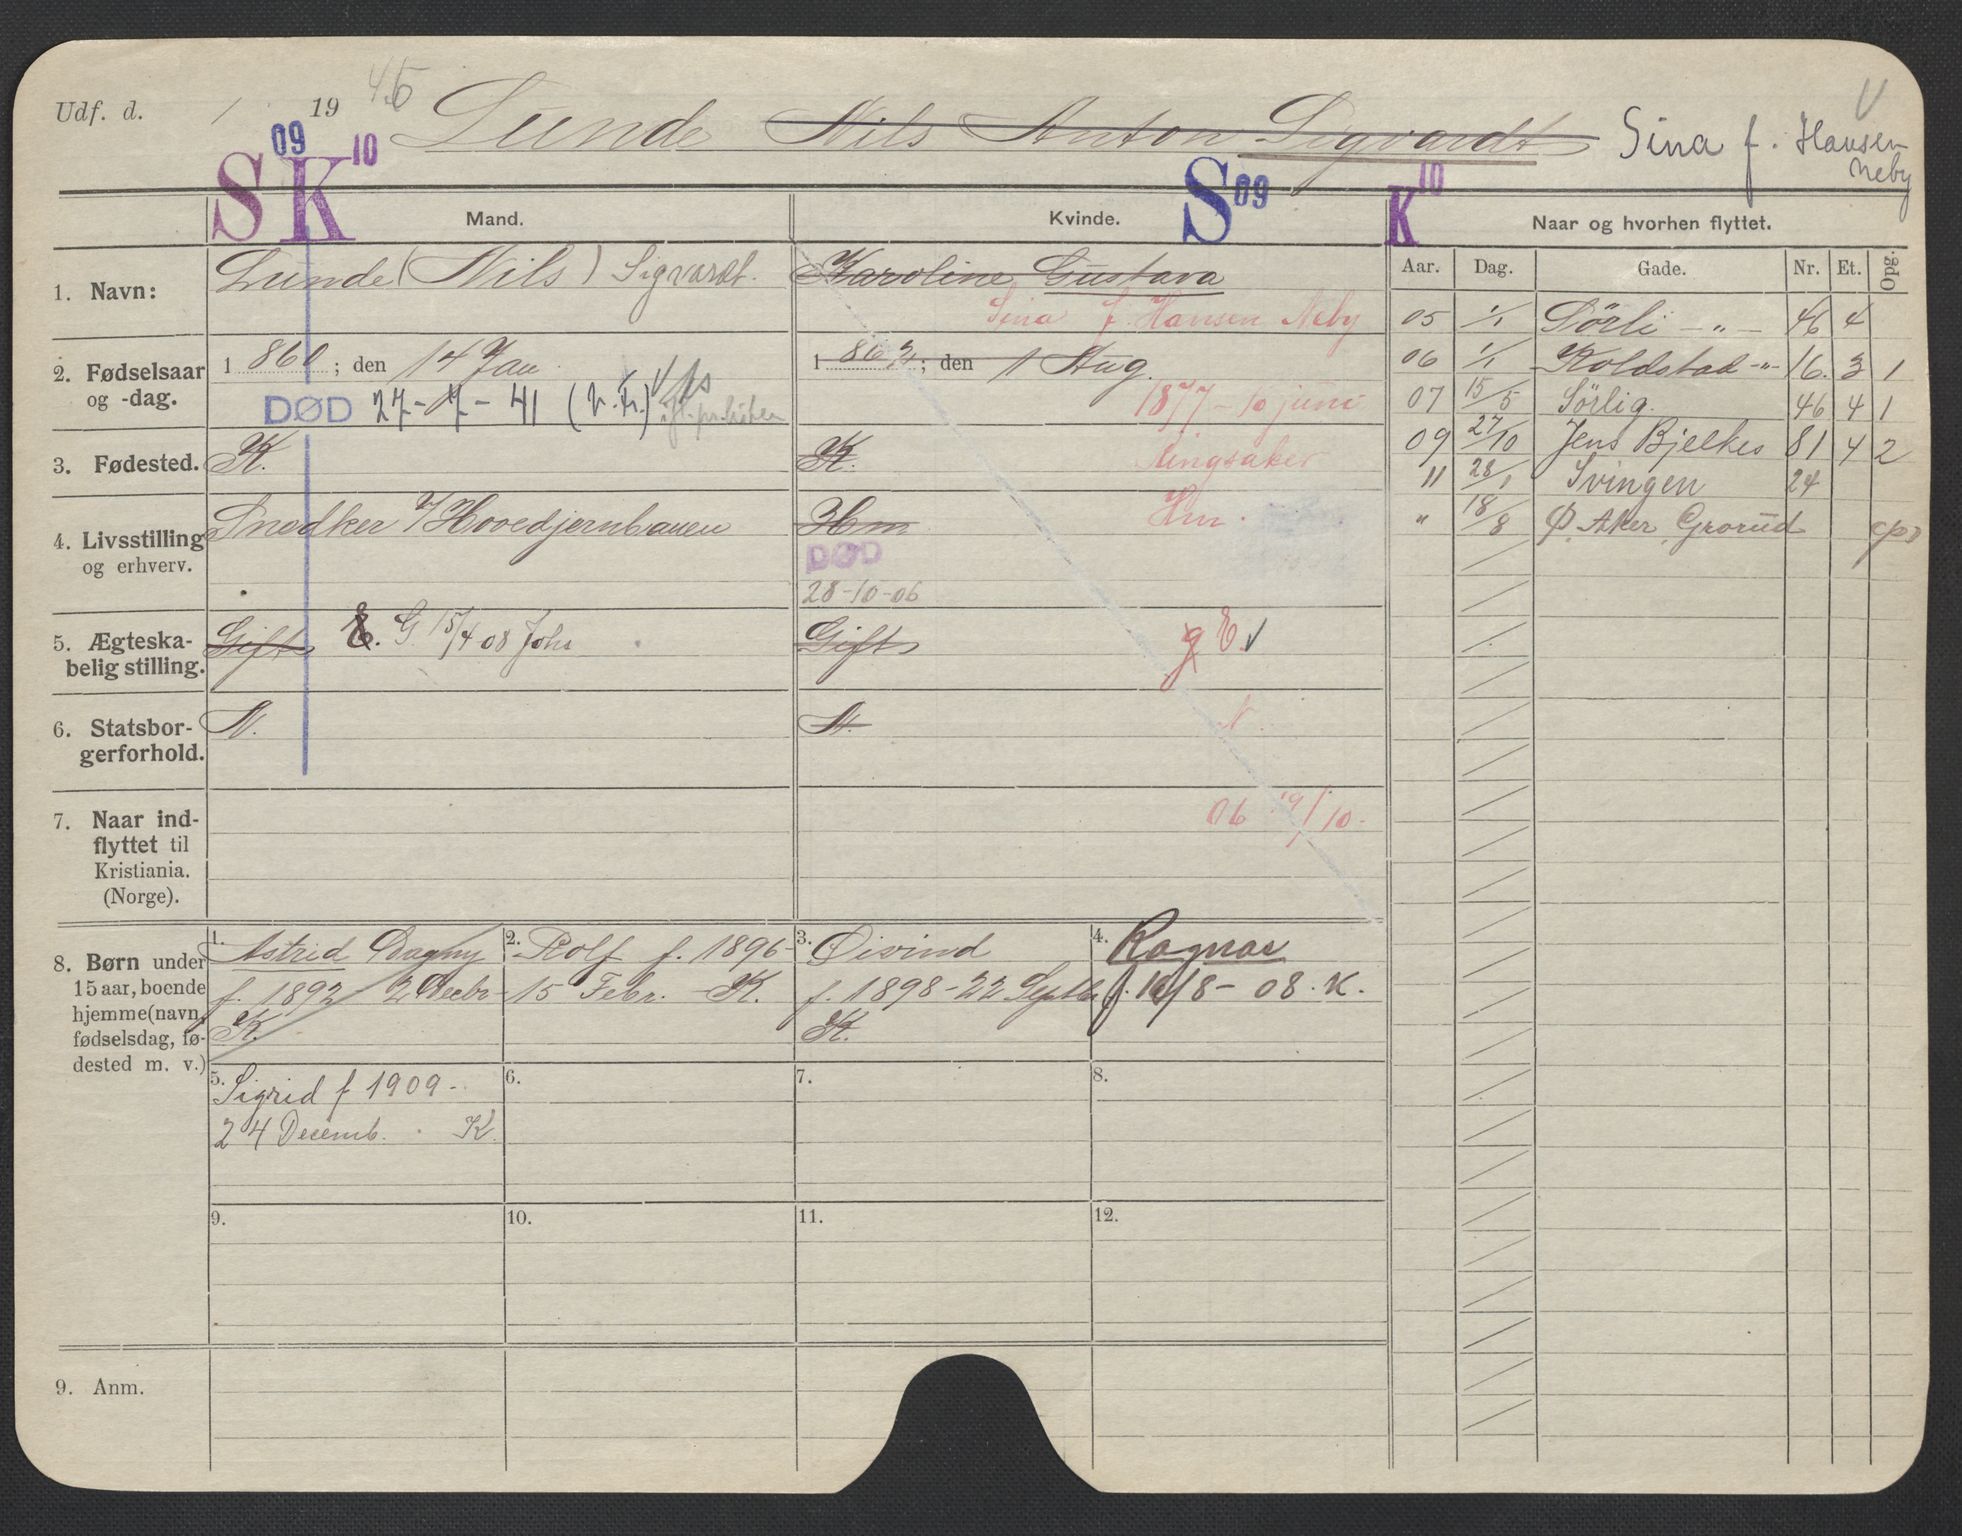 Udf. d. / 19 45 Lunde Nils Anton Sigvardt Sina f. Hansen Neby
V
S 09 K 10 S 09 K 10
Mand. Kvinde. Naar og hvorhen flyttet.
Aar. Dag. Gade. Nr. Et. Opg.
1. Navn: Lunde (Nils) Sigvardt. Karoline Gustava
Sina f. Hansen Neby
2. Fødselsaar og -dag. 1 860; den 14 Jan. 1 862; den 1 Aug.
DØD 27-7-41 (v. Fr.)
1877 - 10 juni
3. Fødested. K. K. Ringsaker
4. Livsstilling og erhverv. Snedker v/Hovedjernbanen Hm Hm.
DØD
28-10-06
5. Ægteska-
belig stilling. Gift E. G 15/4 08 Johs Gift g E.
6. Statsbor-
gerforhold. N. N. N.
7. Naar ind-
flyttet til
Kristiania.
(Norge).
06 19/10-
05 1/1 Sörli -"- 46 4
06 1/1 Koldstad -"- 16. 3 1
07 15/5 Sörlig. 46 4 1
09 27/10 Jens Bjelkes 81 4 2
11 28/1 Svingen 24
" 18/8 Ø. Aker, Grorud
8. Børn under
15 aar, boende
hjemme (navn,
fødselsdag, fø-
dested m. v.)
1. Astrid Dagny
f. 1892 2 Decbr
K.
2. Rolf f. 1896-
15 Febr. K.
3. Øivind
f. 1898-22 Septbr
K.
4. Ragnar
f. 10/8-08. K.
5. Sigrid f 1909-
24 Decemb. K.
6.
7.
8.
9.
10.
11.
12.
9. Anm.